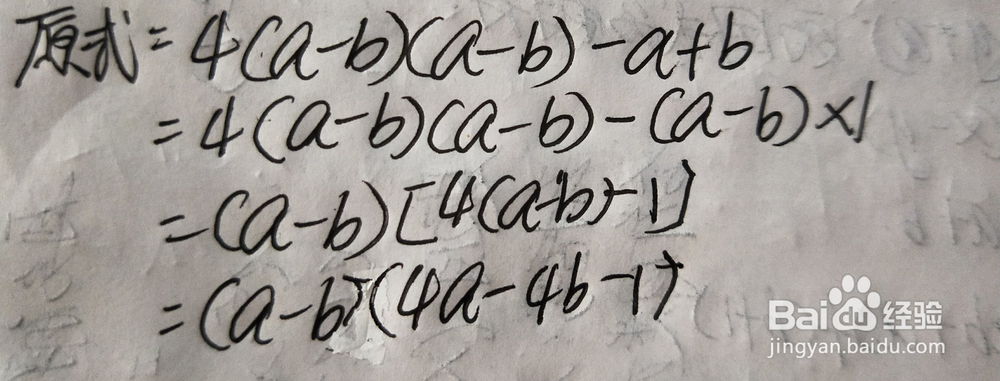 原式=4(a-b)(a-b)-a+b
=4(a-b)(a-b)-(a-b)×1
=(a-b)[4(a-b)-1]
=(a-b)(4a-4b-1)
Bai 经验
jingyan.baidu.com